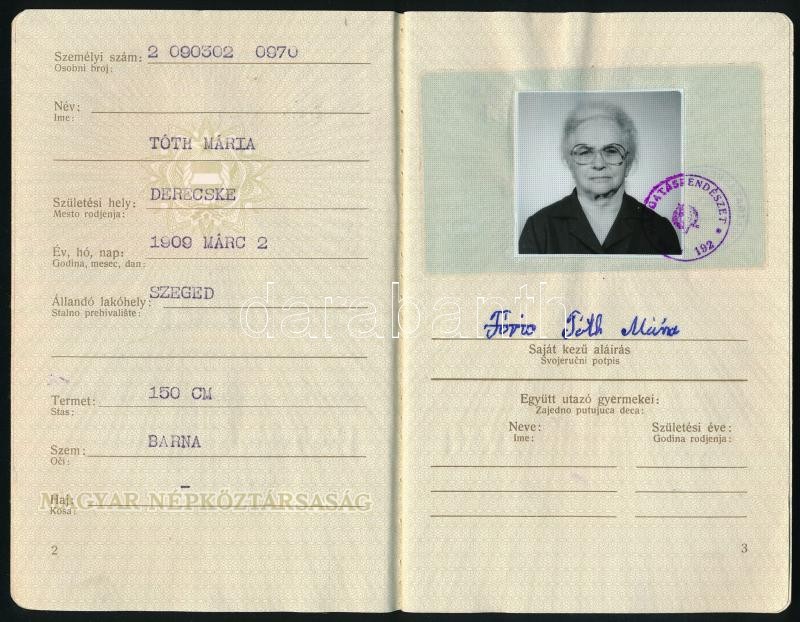 Személyi szám: 2 090302 0970
Osobni broj:
Név:
Ime:
TÓTH MÁRIA
Születési hely: DERECSKE
Mesto rodjenja:
Év, hó, nap: 1909 MÁRC 2
Godina, mesec, dan:
Állandó lakóhely: SZEGED
Stalno prebivalište:
Termet: 150 CM
Stas:
Szem: BARNA
Oči:
Haj: –
Kosa:
MAGYAR NÉPKÖZTÁRSASÁG
2
GATÁSRENDÉSZET * 192
darabanth
Tóth Mária
Saját kezű aláírás
Svojeručni potpis
Együtt utazó gyermekei:
Zajedno putujuca deca:
Neve: Születési éve:
Ime: Godina rodjenja:
3